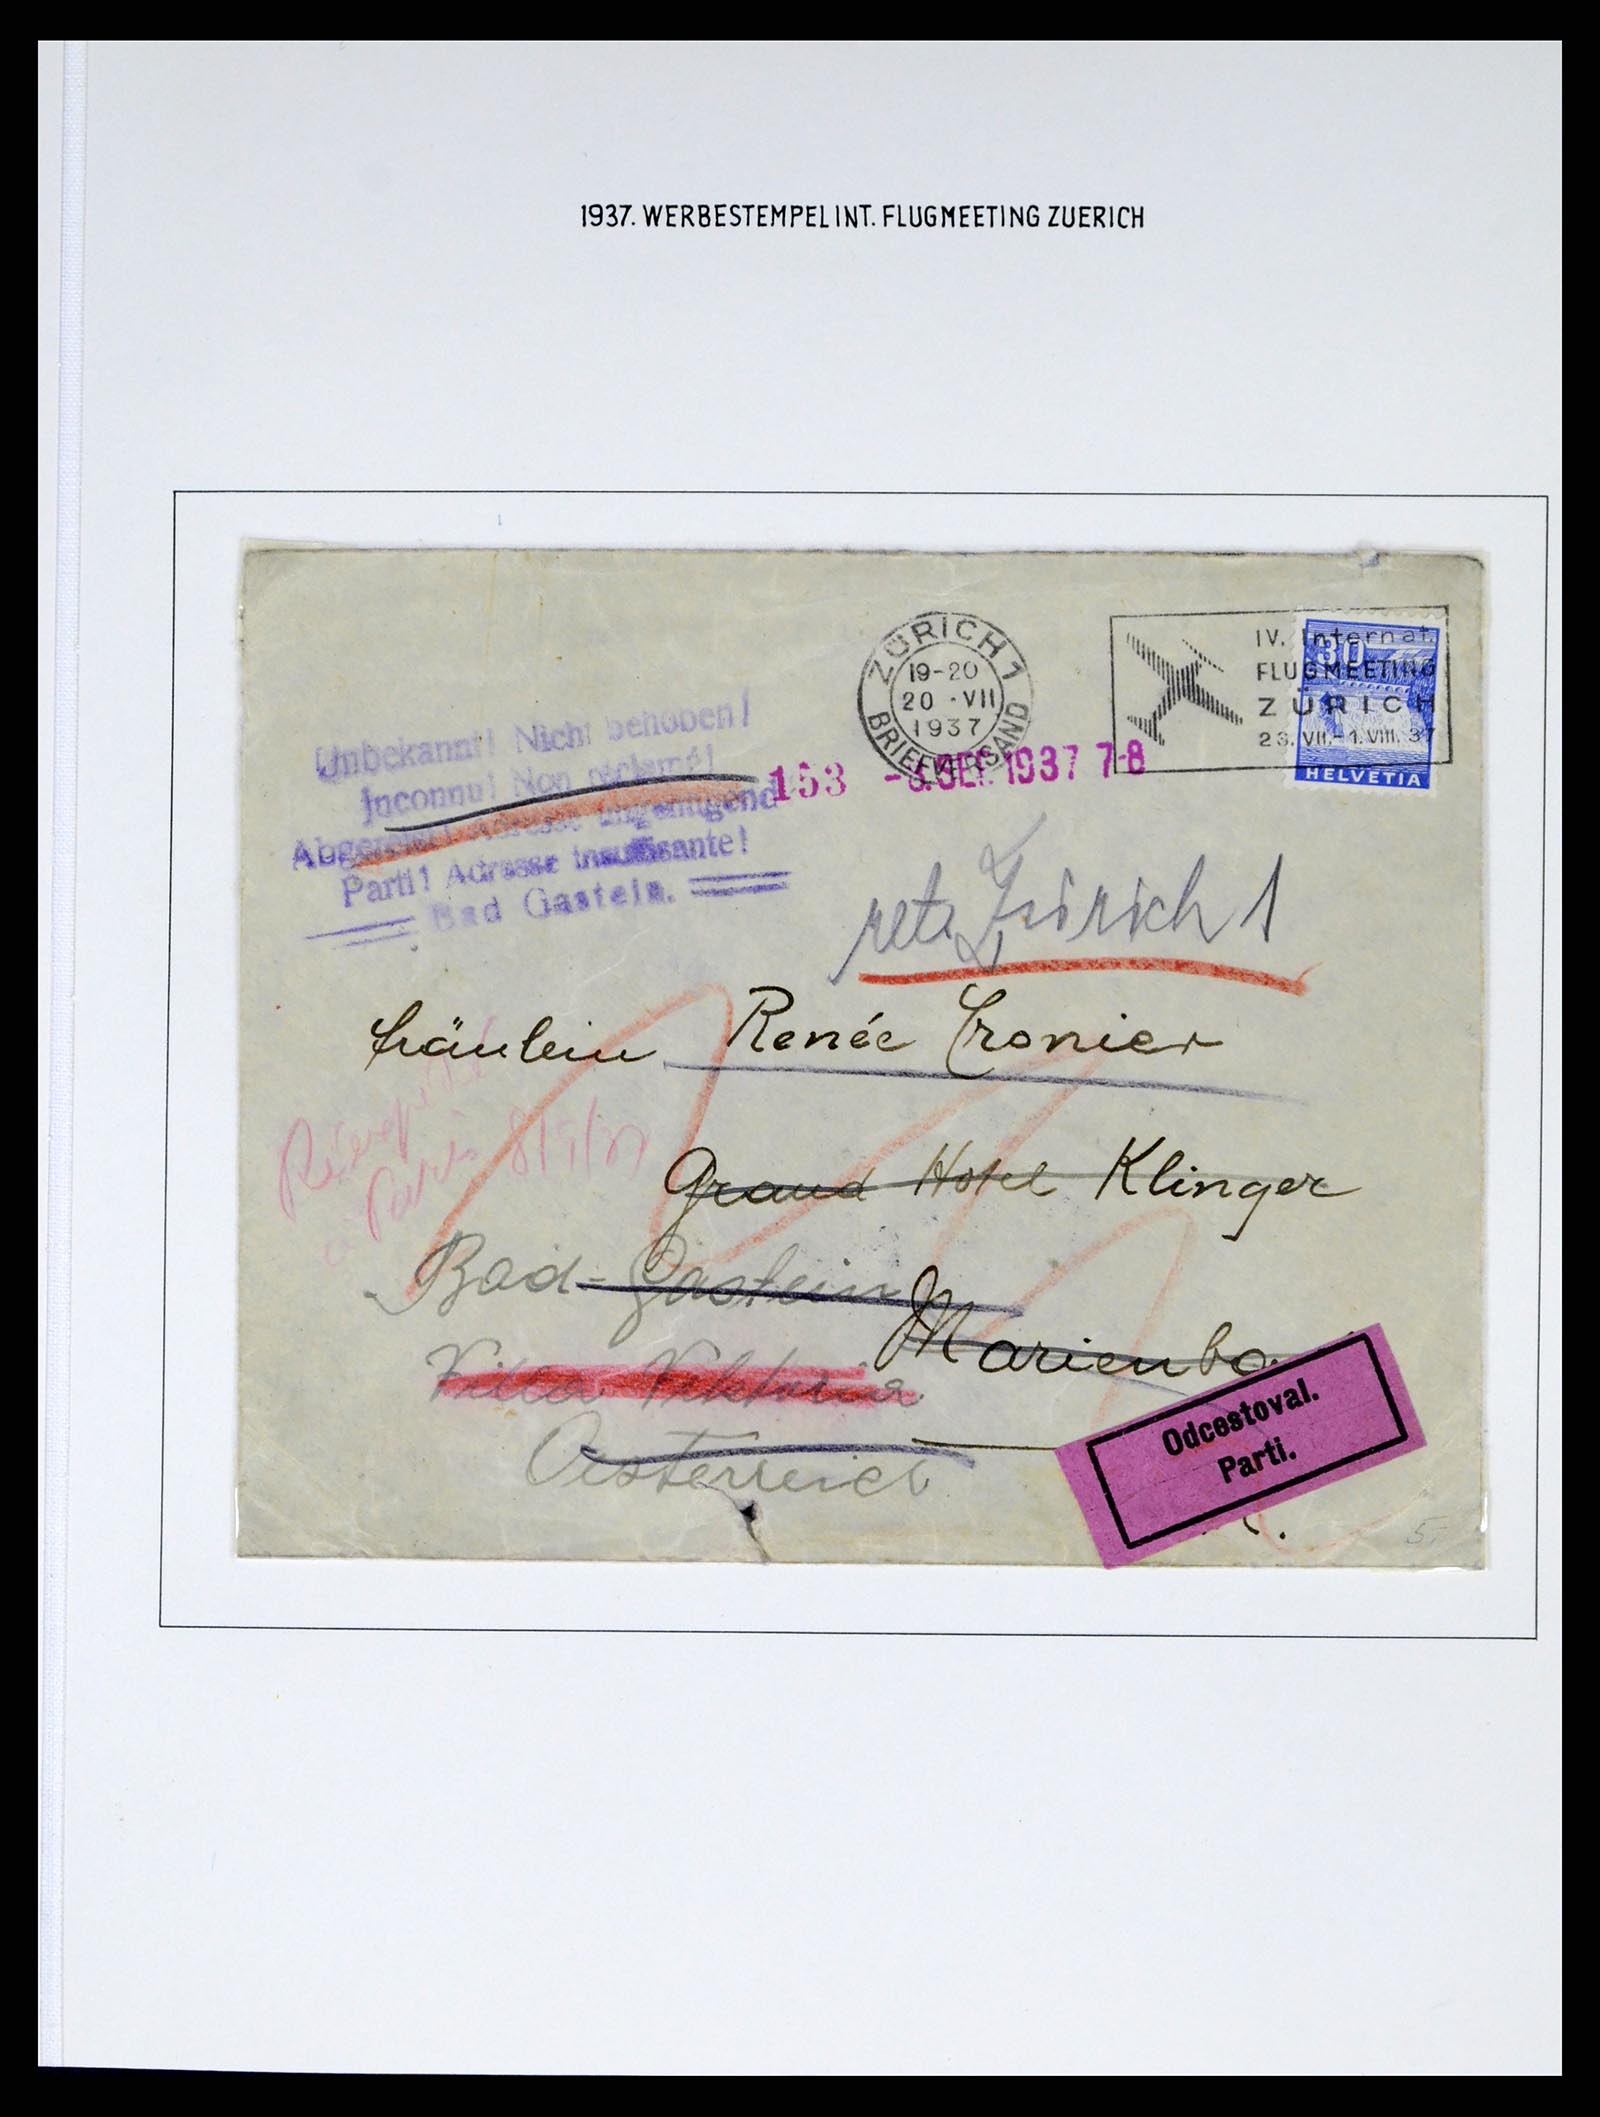 1937. WERBESTEMPEL INT. FLUGMEETING ZUERICH
ZÜRICH 1
19-20
20 · VII
1937
BRIEFVERSAND
IV. Internat.
FLUGMEETING
ZÜRICH
23. VII.-1. VIII. 37
30
HELVETIA
Unbekannt! Nicht behoben!
Inconnu! Non réclamé!
Abgereist! Adresse ungenügend
Parti! Adresse insuffisante!
Bad Gastein.
153 -3. SEP. 1937 7-8
Zürich 1
Fräulein Renée Cronier
Grand Hotel Klinger
à Paris
Bad-Gastein
Marienba
Villa Viktoria
Oesterreich
Odcestoval.
Parti.
5.